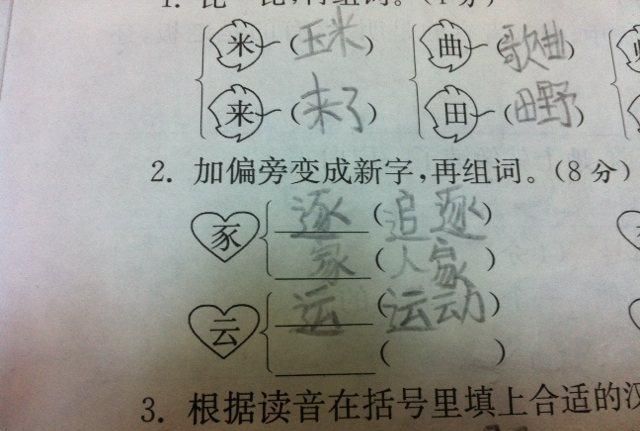 1. 比一比,再组词。(4分)
米 (玉米) 曲 (歌曲)
来 (来了) 田 (田野)
2. 加偏旁变成新字,再组词。(8分)
豕 逐 (追逐)
家 (人家)
云 运 (运动)
( )
3. 根据读音在括号里填上合适的汉